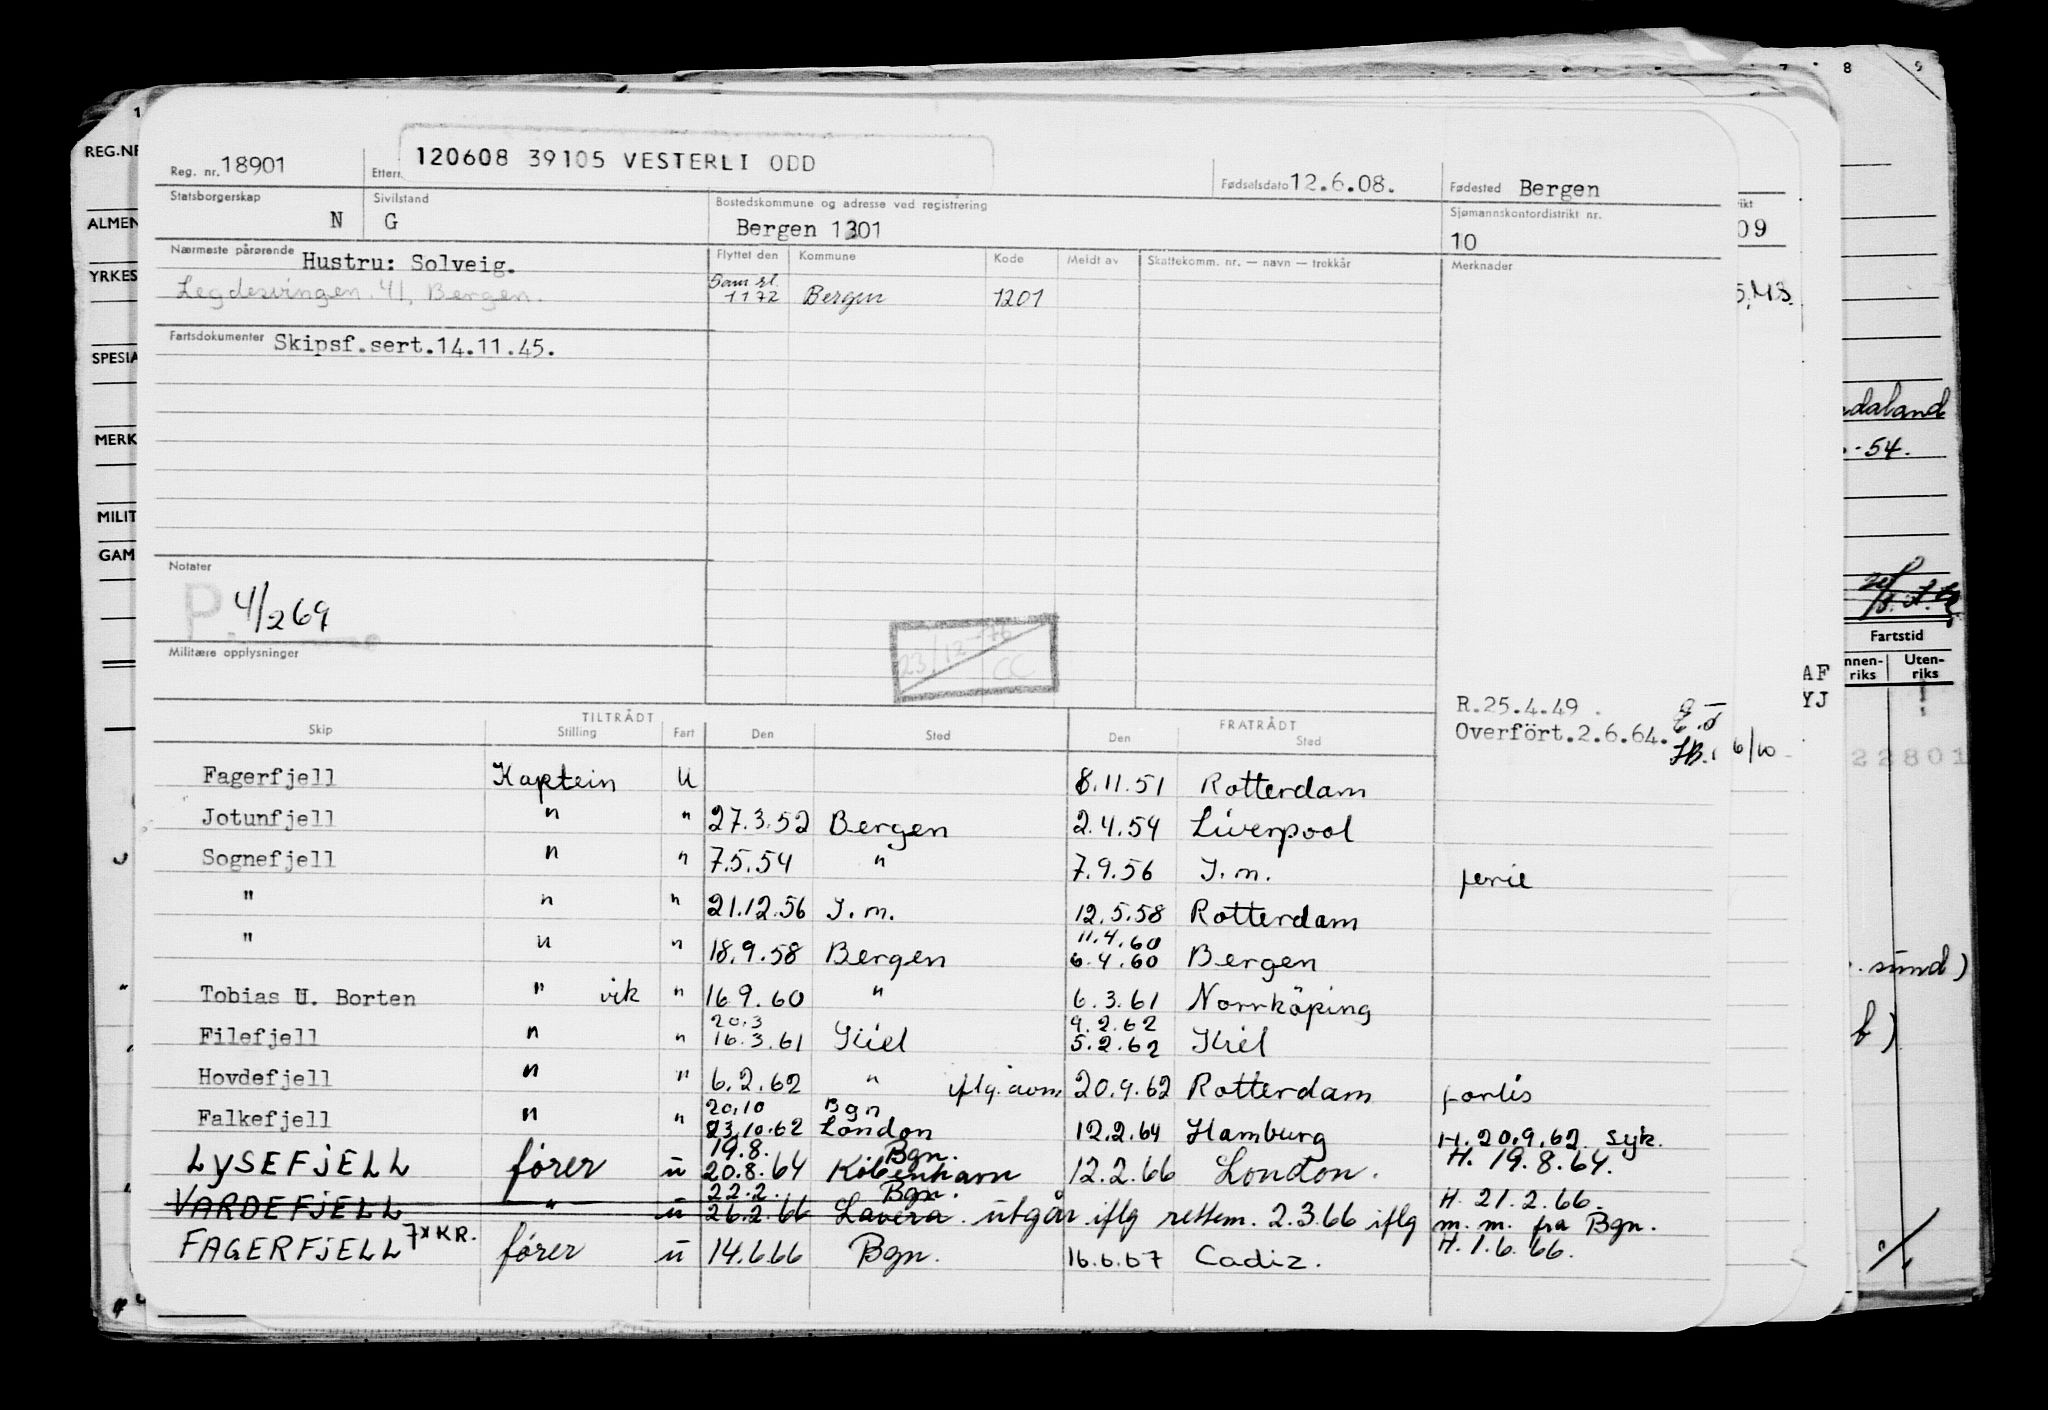 120608 39105 VESTERLI ODD
Reg. nr. 18901 Ettern Fødselsdato 12.6.08. Fødested Bergen
Statsborgerskap N Sivilstand G Bostedskommune og adresse ved registrering Bergen 1301 Sjømannskontordistrikt nr. 10
Nærmeste pårørende Hustru: Solveig. Flyttet den Kommune Kode Meldt av Skattekomm. nr. — navn — trekkår Merknader
Legdesvingen 41, Bergen. Sam sl. 1172 Bergen 1201
Fartsdokumenter Skipsf.sert.14.11.45.
Notater
P. 4/269
Militære opplysninger
23/12-76 CC
R.25.4.49.
Overført.2.6.64.
TILTRÅDT FRATRÅDT
Skip Stilling Fart Den Sted Den Sted
Fagerfjell Kaptein U 8.11.51 Rotterdam
Jotunfjell " " 27.3.52 Bergen 2.4.54 Liverpool
Sognefjell " " 7.5.54 " 7.9.56 I.m. ferie
" " " 21.12.56 I.m. 12.5.58 Rotterdam
" " " 18.9.58 Bergen 11.4.60 6.4.60 Bergen
Tobias U. Borten " vik " 16.9.60 " 6.3.61 Norrköping
Filefjell " " 20.3 16.3.61 Kiel 9.2.62 5.2.62 Kiel
Hovdefjell " " 6.2.62 " iflg. avm 20.9.62 Rotterdam forlis
Falkefjell " " 20.10 Bgn 23.10.62 London 12.2.64 Hamburg H. 20.9.62 syk.
LYSEFJELL fører u 19.8. Bgn. 20.8.64 København 12.2.66 London. H. 19.8.64.
VARDEFJELL " u 22.2. Bgn. 26.2.66 Lavera. utgår iflg rettem. 2.3.66 iflg m.m. fra Bgn. H. 21.2.66.
FAGERFJELL 7xKR. fører u 14.6.66 Bgn. 16.6.67 Cadiz. H. 1.6.66.
REG.NR
ALMEN
YRKES
SPESIA
MERK
MILIT
GAM
7 8 9
09
daland
-54.
Fartstid
nnen-riks Uten-riks
AF
YJ
22801
sund)